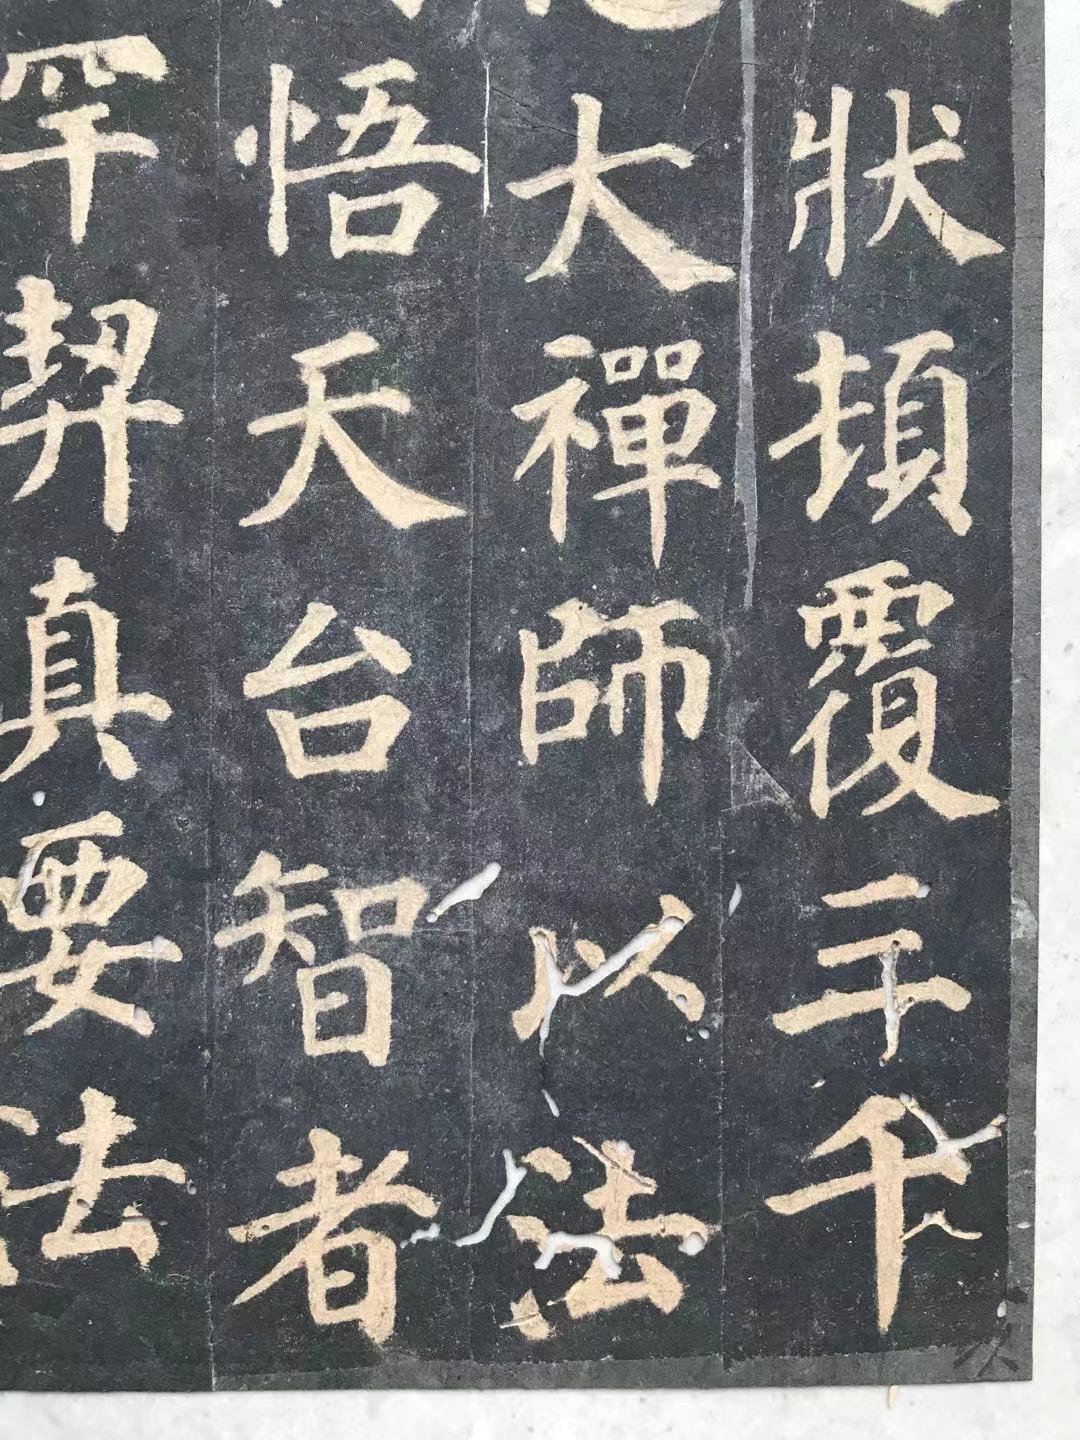 狀頓覆三千
大禪師以法
悟天台智者
罕契真要法